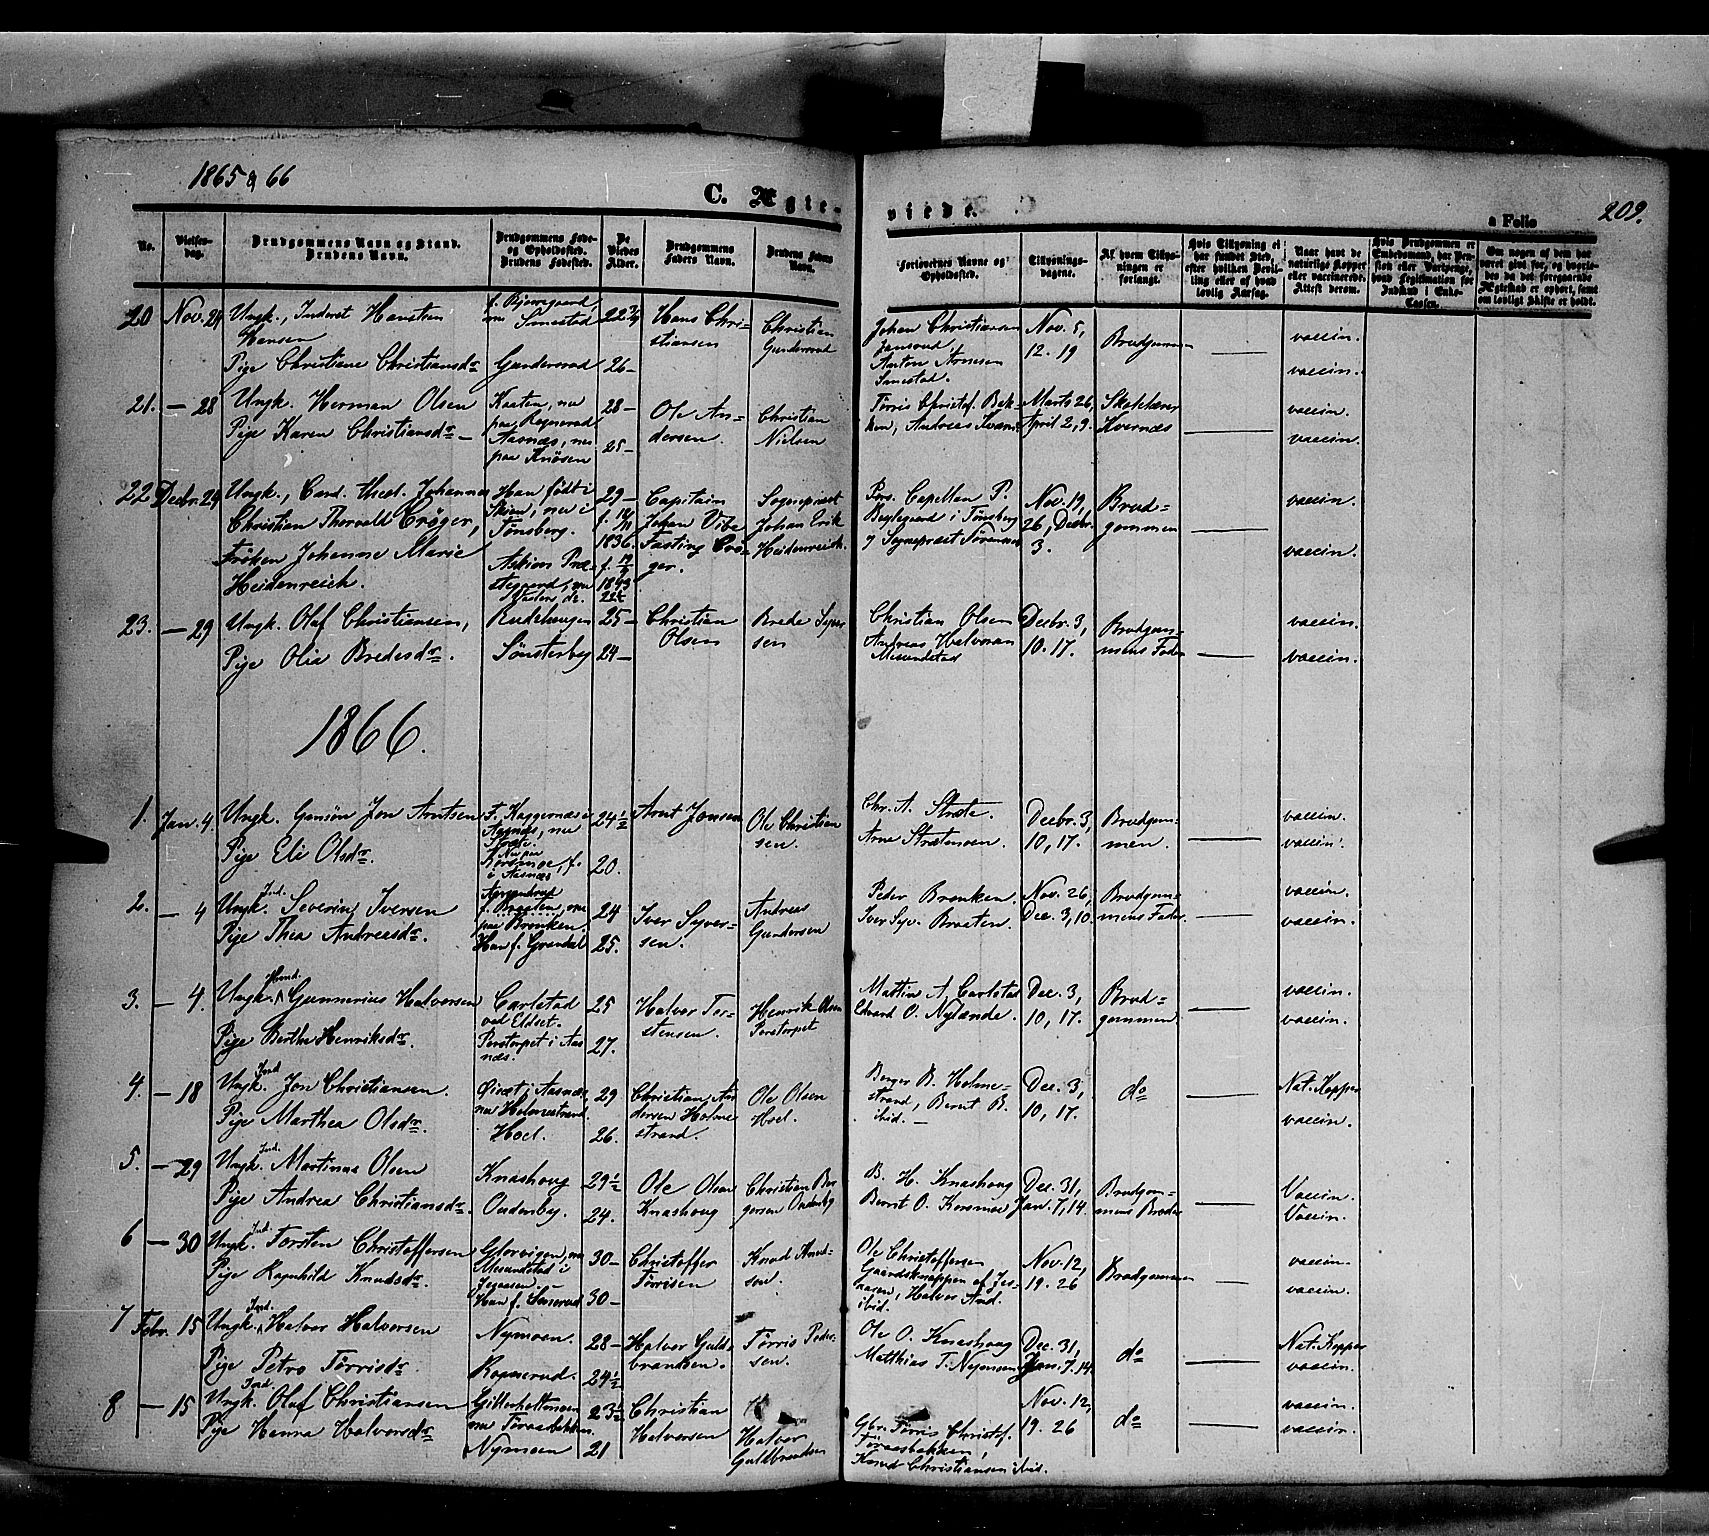 1865 & 66
C. Ægte-
viede.
a Folio
209.
No.
Vielses-
dag.
Brudgommens Navn og Stand.
Brudens Navn.
Brudgommens Føde-
og Opholdssted.
Brudens Fødested.
De
Viedes
Alder.
Brudgommens
Faders Navn.
Brudens Faders
Navn.
Forlovernes Navne og
Opholdssted.
Tillysnings-
dagene.
Af hvem Tillys-
ningen er
forlangt.
Hvis Tillysning ei
har fundet Sted,
efter hvilken Bevil-
ling eller af hvad
lovlig Aarsag.
Naar havt de
naturlige Kopper
eller vaccinerede.
Attest derom.
Hvis Brudgommen er
Embedsmand, har Pen-
sion eller Vartpenge,
hvad Legitimation for
Indskud i Enke-
Cassen.
Om nogen af dem har
været givt før, og hvorle-
des da det foregaaende
Ægteskab er ophørt, samt
om lovligt Skifte er holdt.
20 Nov. 24 Ungk., Inderst Hanstin
Hansen
Pige Christiane Christiansdr
f. Bjerregaard,
nu Smestad
Gundersrud
26-
Hans Chri-
stiansen
Christian
Gundersrud
Johan Christiansen
Anton Arnesen
Smestad.
Nov. 5,
12. 19
Brudgommen
vaccin.
vaccin.
21. - 28 Ungk. Herman Olsen
Pige Karen Christiansdr -
Kaaten, nu
paa Regnerud
Aasnæs, nu
paa Knösen
28-
25-
Ole An-
dersen.
Christian
Nielsen
Törris Christof. Bak-
ken, Andreas Kvern
Marts 26,
April 2, 9.
Skolelærer
Kvernæs
vaccin.
vaccin.
22 Decbr. 29 Ungk., Cand. theol. Johannes
Christian Thorvald Cröger,
Fröken Johanne Marie
Heidenreich.
Han födt i
Skien, nu i
Tönsberg.
Askim Præ-
stegaard, nu
29-
1836.
1843
Capitain
Johan Vibe
Fasting Crö-
ger.
Sognepræst
Johan Erik
Heidenreich.
Pers. Capellan P.
Beglegaard i Tönsberg
og Sognepræst Sörensen
Nov. 19,
26, Decbr.
3.
Brud-
gommen
vaccin.
vaccin.
23. - 29 Ungk. Olaf Christiansen,
Pige Olia Bredesdr.
Rudehaugen
Sönsterby
25-
24-
Christian
Olsen
Brede Syver
sen
Christian Olsen
Andreas Halvorsen
Mesundstad
Decbr. 3,
10. 17.
Brudgom-
mens Fader
vaccin.
vaccin.
1866.
1. Jan. 4. Ungk. Jon Arntsen
Pige Eli Olsdr.
F. Kaggernæs i
Aasnæs, nu
Korsmoe, f.
i Aasnæs
24½
20.
Arnt Jonsen
Ole Christian
sen.
Chr. A. Stræte.
Arne Strætmoen.
Decbr. 3,
10, 17.
Brudgom-
men.
vaccin.
vaccin.
2. - 4 Ungk. Ind. Severin Iversen
Pige Thea Andreasdr.
f. Braaten, nu
paa Bronken.
Hun f. Grændal
24
25.
Iver Syver-
sen.
Andreas
Gundersen
Peder Bronken.
Iver Syv. Braaten.
Nov. 26,
Dec. 3, 10.
Brudgom-
mens Fader
vaccin.
vaccin.
3. - 4. Ungk. Gunnerius Halvorsen
Pige Berthe Henriksdr.
Carlstad
ved Eldset.
Perstorpet i Aas-
næs.
25
27.
Halvor Tor-
stensen.
Henrik Olsen
Perstorpet
Mattin A. Carlstad
Edvard O. Nylænde.
Dec. 3,
10, 17.
Brud-
gommen
vaccin.
vaccin.
4. - 18 Ungk. Ind. Jon Christiansen.
Pige Marthea Olsdr.
Öiset i Aasnæs
nu Holmestrand.
Hoel.
29
26.
Christian An-
dersen Holme
strand.
Ole Olsen
Hoel.
Berger B. Holme-
strand, Bernt B.
ibid.
Dec. 3,
10, 17.
do
Nat. Kopper
vaccin.
5. - 29 Ungk. Ind. Martinus Olsen
Pige Andrea Christiansdr.
Knashoug
Oudenby.
29½
24.
Ole Olsen
Knashoug
Christian Ber
gersen Oudenby
B. H. Knashoug
Bernt O. Korsmoe
Dec. 31,
Jan. 7, 14.
Brudgom-
mens Broder
Vaccin.
Vaccin.
6 - 30 Ungk. Ind. Torsten Christoffersen
Pige Ragnhild Knudsdr.
Glorvigen, nu
Mesundstad i
Hun f. Senserud
30-
30-
Christoffer
Törrisen
Knud Knud-
sen.
Ole Christoffersen
Gaardsknappen af Jes-
karen, Halvor And.
ibid.
Nov. 12,
19. 26
Brudgommen
vaccin.
vaccin.
7 Febr. 15 Ungk. Ind. Halvor Halvorsen
Pige Petro Törrisdr.
Nymoen.
Rognerud.
28-
24½
Halvor Guld-
brandsen.
Törris Peder-
sen.
Ole O. Knashoug
Matthias T. Nymoen
Dec. 31,
Jan. 7. 14.
do
Nat. Kopper
vaccin.
8 - 15 Ungk. Ind. Olaf Christiansen
Pige Hanna Halvorsdr
nu Toraasbakken.
Nymoen
23½
21
Christian
Halvorsen
Halvor
Guldbrandsen
Gbr. Törris Christof.
Toraasbakken,
Knud Christiansen ibid.
Nov. 12,
19. 26
do
vaccin.
vaccin.